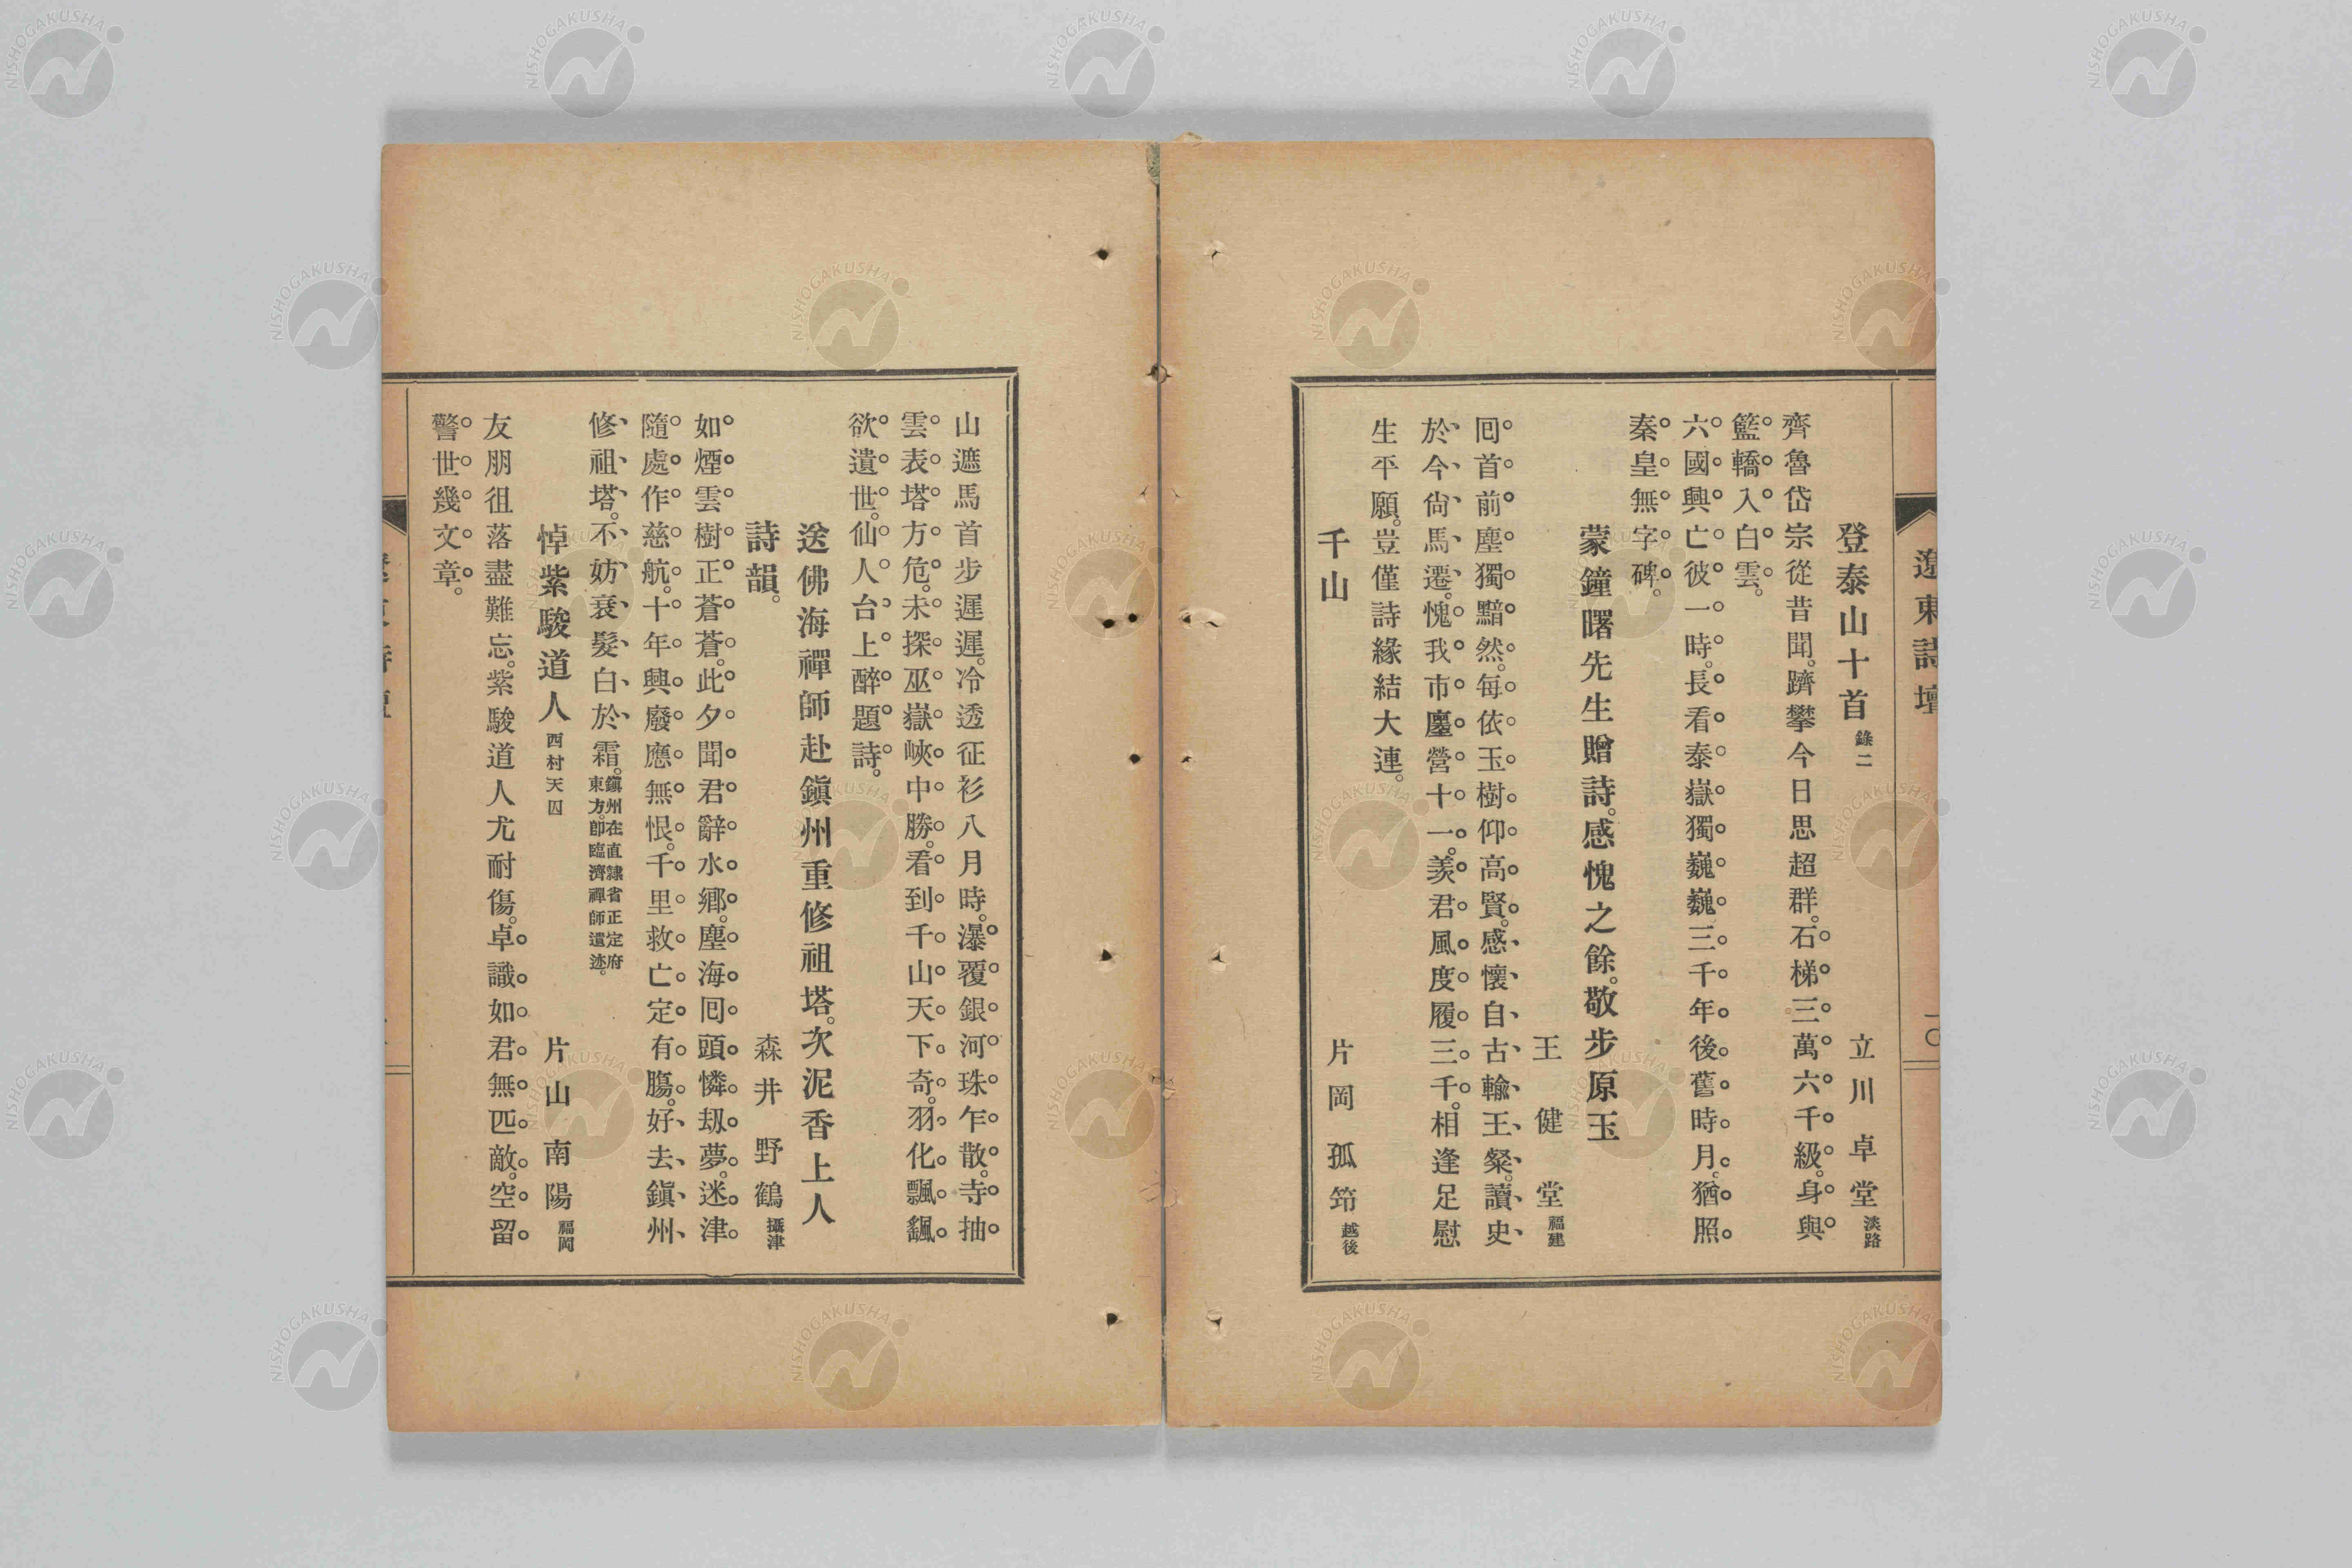 遼東詩壇
一〇
登泰山十首 錄二
立川卓堂 淡路
齊魯岱宗從昔聞。躋攀今日思超群。石梯三萬六千級。身與
籃轎入白雲。
六國興亡彼一時。長看泰嶽獨巍巍。三千年後舊時月。猶照
秦皇無字碑。
蒙鐘曙先生贈詩。感愧之餘。敬步原玉
王健堂 福建
囘首前塵獨黯然。每依玉樹仰高賢。感懷自古輸王粲。讀史
於今尙馬遷。愧我市廛營十一。羨君風度履三千。相逢足慰
生平願。豈僅詩緣結大連。
千山
片岡孤筇 越後
山遮馬首步遲遲。冷透征衫八月時。瀑覆銀河珠乍散。寺抽
雲表塔方危。未探巫嶽峽中勝。看到千山天下奇。羽化飄飖
欲遺世。仙人台上醉題詩。
送佛海禪師赴鎭州重修祖塔。次泥香上人
詩韻。
森井野鶴 攝津
如煙雲樹正蒼蒼。此夕聞君辭水鄕。塵海囘頭憐刼夢。迷津
隨處作慈航。十年興廢應無恨。千里救亡定有膓。好去鎭州
修祖塔。不妨衰髮白於霜。鎭州在直隸省正定府
東方。卽臨濟禪師遺迹。
悼紫駿道人 西村天囚
片山南陽 福岡
友朋徂落盡難忘。紫駿道人尤耐傷。卓識如君無匹敵。空留
警世幾文章。